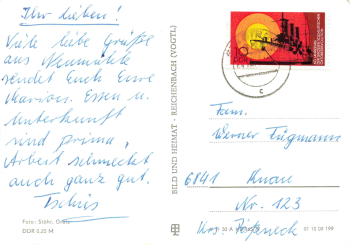 Ihr Lieben!
Viele liebe Grüße
aus Neumühle
sendet Euch Eure
Marion. Essen u.
Unterkunft
sind prima,
Arbeit schmeckt
auch ganz gut.
Tschüs
Foto: Stöhr,
DDR 0,25 M
BILD UND HEIMAT · REICHENBACH (VOGTL)
10
DDR
c
Fam.
Werner
6841 Knau
Nr. 123
Krs. Pößneck